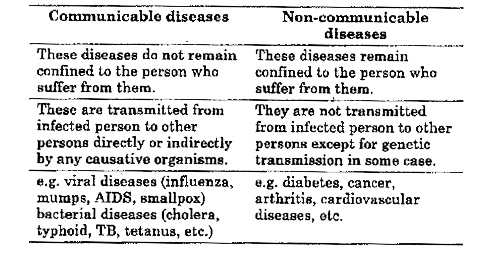 Communicable diseases
Non-communicable
diseases
These diseases do not remain
confined to the person who
suffer from them.
These diseases remain
confined to the person who
suffer from them.
These are transmitted from
infected person to other
persons directly or indirectly
by any causative organisms.
They are not transmitted
from infected person to other
persons except for genetic
transmission in some case.
e.g. viral diseases (influenza,
mumps, AIDS, smallpox)
bacterial diseases (cholera,
typhoid, TB, tetanus, etc.)
e.g. diabetes, cancer,
arthritis, cardiovascular
diseases, etc.